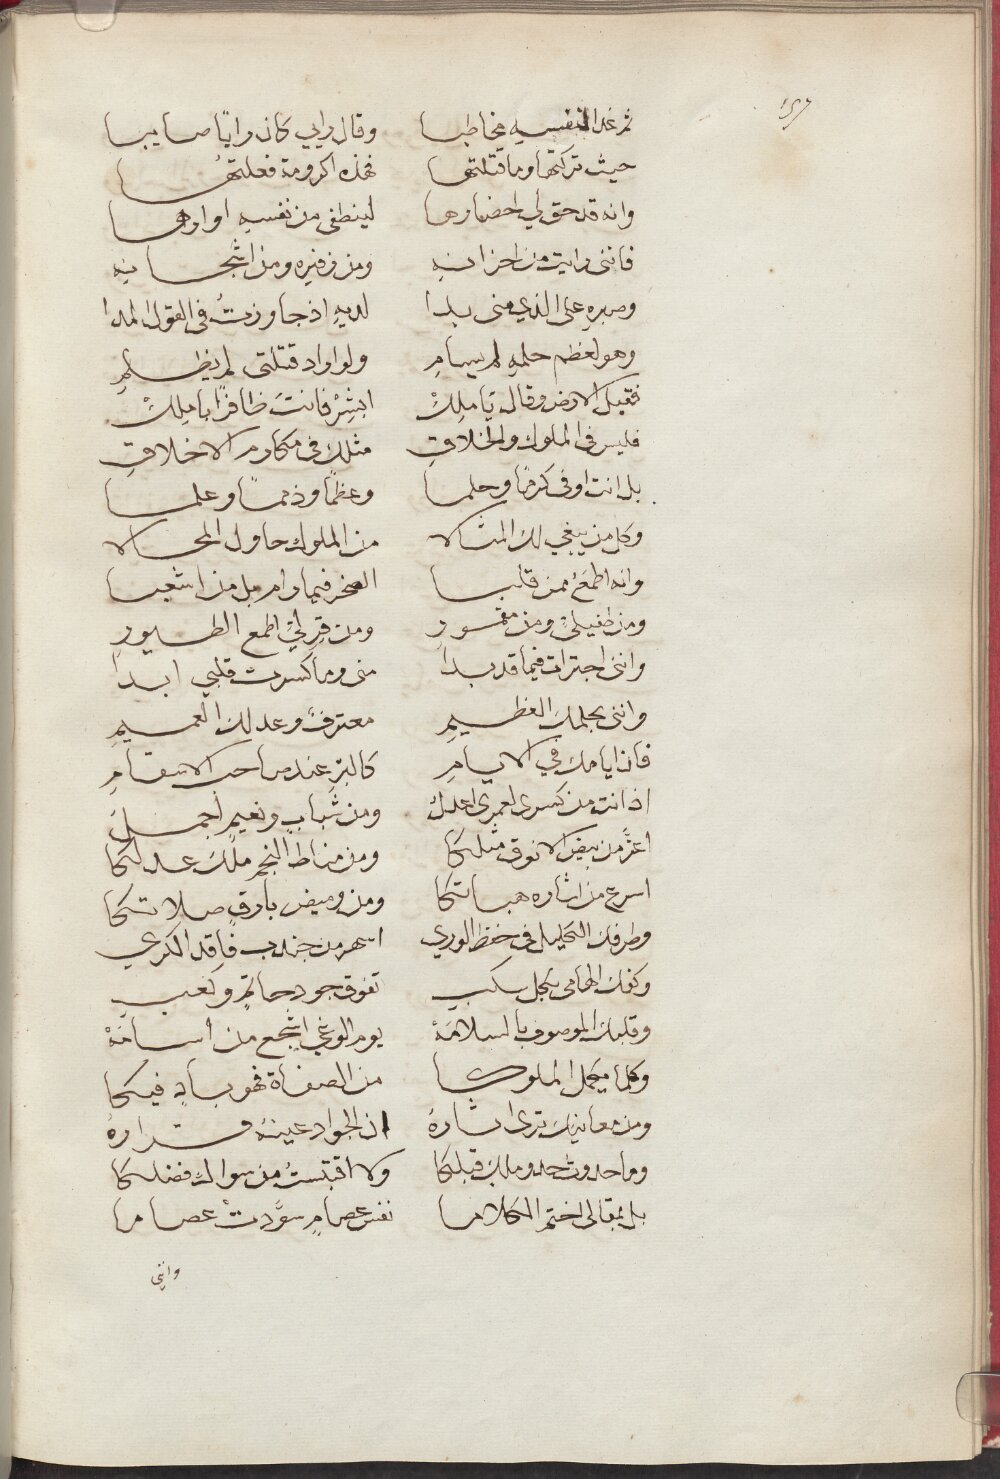 ثم غدا لنفسه مخاطبا وقال رايي كان رايًا صايبا
حيث تركتها وما قتلتها فهذه اكرومة فعلتها
وانه قد حق لي احضارها لينطفي من نفسه اوارها
فانني رايت من احزانه ومن زفيره ومن اشجانه
وصبره على الذي مني بدا لديه اذ جاوزتُ في القول المدا
وهو لعظم حلمهِ لم يسامِ ولو اراد قتلتي لم يظلمِ
فقبل الارض وقال يا ملِكْ ابشِرْ فانتَ ظافرًا بامِلكْ
فليس في الملوك والخلاقِ مثلك في مكارم الاخلاقِ
بل انت اوفى كرمًا وحلما وعظمًا وذممًا وعلما
وكل من يبغي لك المثالا من الملوك حاول المحالا
وانه اطمَعُ ممن قلبا الصخر فيما رام بل من اشعبا
ومن طفيليٍ ومن مقمورِ ومن قِرِلىْ اطمع الطيورِ
وانني اجترات فيما قد بدا مني وما كسرت قلبي ابدا
وانني بحلمك العظيمِ معترفٌ وعدلك العميمِ
فان ايامك في الايامِ كالبرِ عند صاحب الاسقامِ
اذ انت من كسرى لعمري اعدل ومن شبابٍ ونعيمٍ اجملُ
اعزُّ من بيض الانوق مثلكا ومن مناط النجم ملكَ عدلكا
اسرع من اشاره هباتكا ومن وميض بارقٍ صلاتكا
وطرفك الكحيل في حفظ الوري اسهر من جندب فاقد الكري
وكفك الهامي بكل سكبِ تفوق جود حاتمٍ وكعبِ
وقلبك الموصوف بالسلامَهْ يوم الوغي اشجع من اسامَهْ
وكلما يجمل الملوكا من الصفاة فهو بادٍ فيكا
ومن معانيك ترى اشارهُ ان الجواد عينهُ فرارهُ
وما حدوث حدو ملك قبلكا ولا اقتبستُ من سواك فضلكا
بل بمقالي اختم الكلاما نفس عصامٍ سوَّدتْ عصاما
وانني